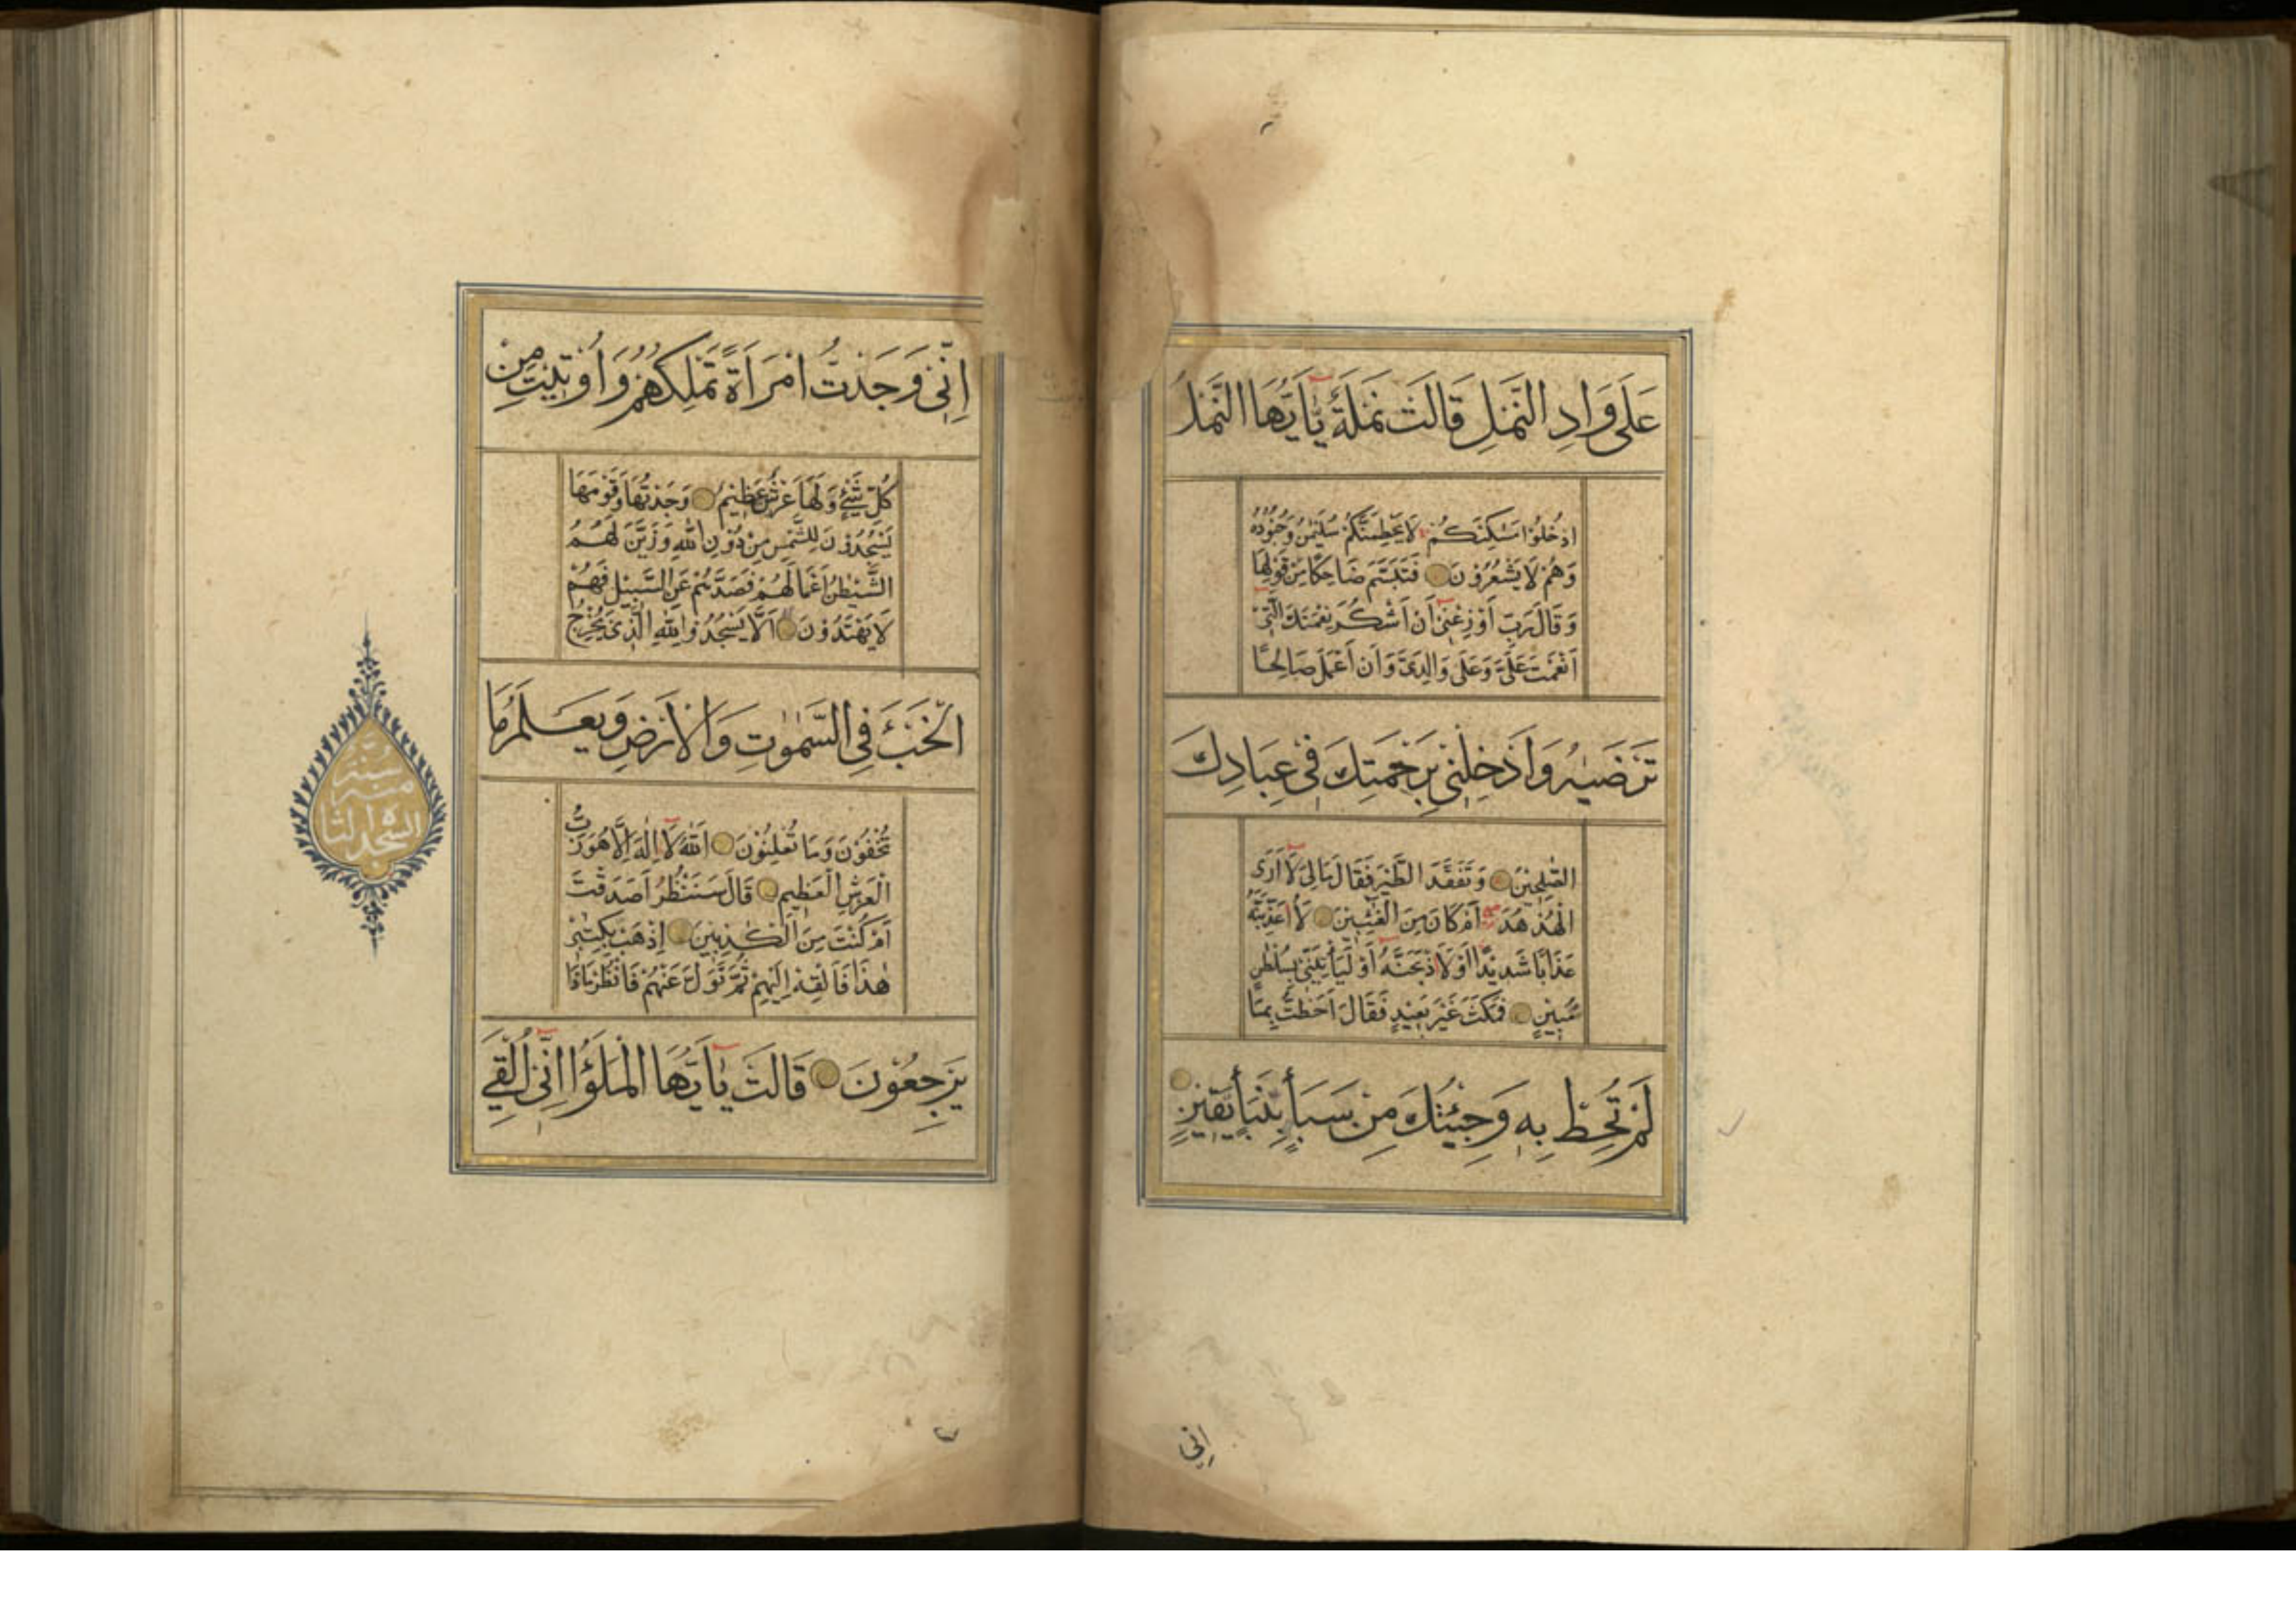 عَلَى وَادِ النَّمْلِ قَالَتْ نَمْلَةٌ يَٰأَيُّهَا النَّمْلُ
ادْخُلُوْا مَسٰكِنَكُمْ لَا يَحْطِمَنَّكُمْ سُلَيْمٰنُ وَجُنُوْدُهُ
وَهُمْ لَا يَشْعُرُوْنَ فَتَبَسَّمَ ضَاحِكًا مِنْ قَوْلِهَا
وَقَالَ رَبِّ أَوْزِعْنِيْ أَنْ أَشْكُرَ نِعْمَتَكَ الَّتِيْ
أَنْعَمْتَ عَلَيَّ وَعَلَى وَالِدَيَّ وَأَنْ أَعْمَلَ صَالِحًا
تَرْضٰيهُ وَأَدْخِلْنِيْ بِرَحْمَتِكَ فِيْ عِبَادِكَ
الصّٰلِحِيْنَ وَتَفَقَّدَ الطَّيْرَ فَقَالَ مَالِيَ لَا أَرَى
الْهُدْهُدَ أَمْ كَانَ مِنَ الْغَٰئِبِيْنَ لَأُعَذِّبَنَّهُ
عَذَابًا شَدِيْدًا أَوْ لَأَاذْبَحَنَّهُ أَوْ لَيَأْتِيَنِّيْ بِسُلْطٰنٍ
مُّبِيْنٍ فَمَكَثَ غَيْرَ بَعِيْدٍ فَقَالَ أَحَطْتُّ بِمَا
لَمْ تُحِطْ بِهٖ وَجِئْتُكَ مِنْ سَبَأٍ بِنَبَأٍ يَّقِيْنٍ
اِنِّي
اِنِّيْ وَجَدْتُّ امْرَأَةً تَمْلِكُهُمْ وَأُوْتِيَتْ مِنْ
كُلِّ شَيْءٍ وَلَهَا عَرْشٌ عَظِيْمٌ وَجَدْتُهَا وَقَوْمَهَا
يَسْجُدُوْنَ لِلشَّمْسِ مِنْ دُوْنِ اللّٰهِ وَزَيَّنَ لَهُمُ
الشَّيْطٰنُ أَعْمَالَهُمْ فَصَدَّهُمْ عَنِ السَّبِيْلِ فَهُمْ
لَا يَهْتَدُوْنَ اَلَّا يَسْجُدُوْا لِلّٰهِ الَّذِيْ يُخْرِجُ
الْخَبْءَ فِي السَّمٰوٰتِ وَالْأَرْضِ وَيَعْلَمُ مَا
تُخْفُوْنَ وَمَا تُعْلِنُوْنَ اَللّٰهُ لَا اِلٰهَ اِلَّا هُوَ رَبُّ
الْعَرْشِ الْعَظِيْمِ قَالَ سَنَنْظُرُ أَصَدَقْتَ
أَمْ كُنْتَ مِنَ الْكٰذِبِيْنَ اِذْهَبْ بِكِتٰبِيْ
هٰذَا فَأَلْقِهْ اِلَيْهِمْ ثُمَّ تَوَلَّ عَنْهُمْ فَانْظُرْ مَاذَا
يَرْجِعُوْنَ قَالَتْ يٰأَيُّهَا الْمَلَؤُا اِنِّيْ أُلْقِيَ